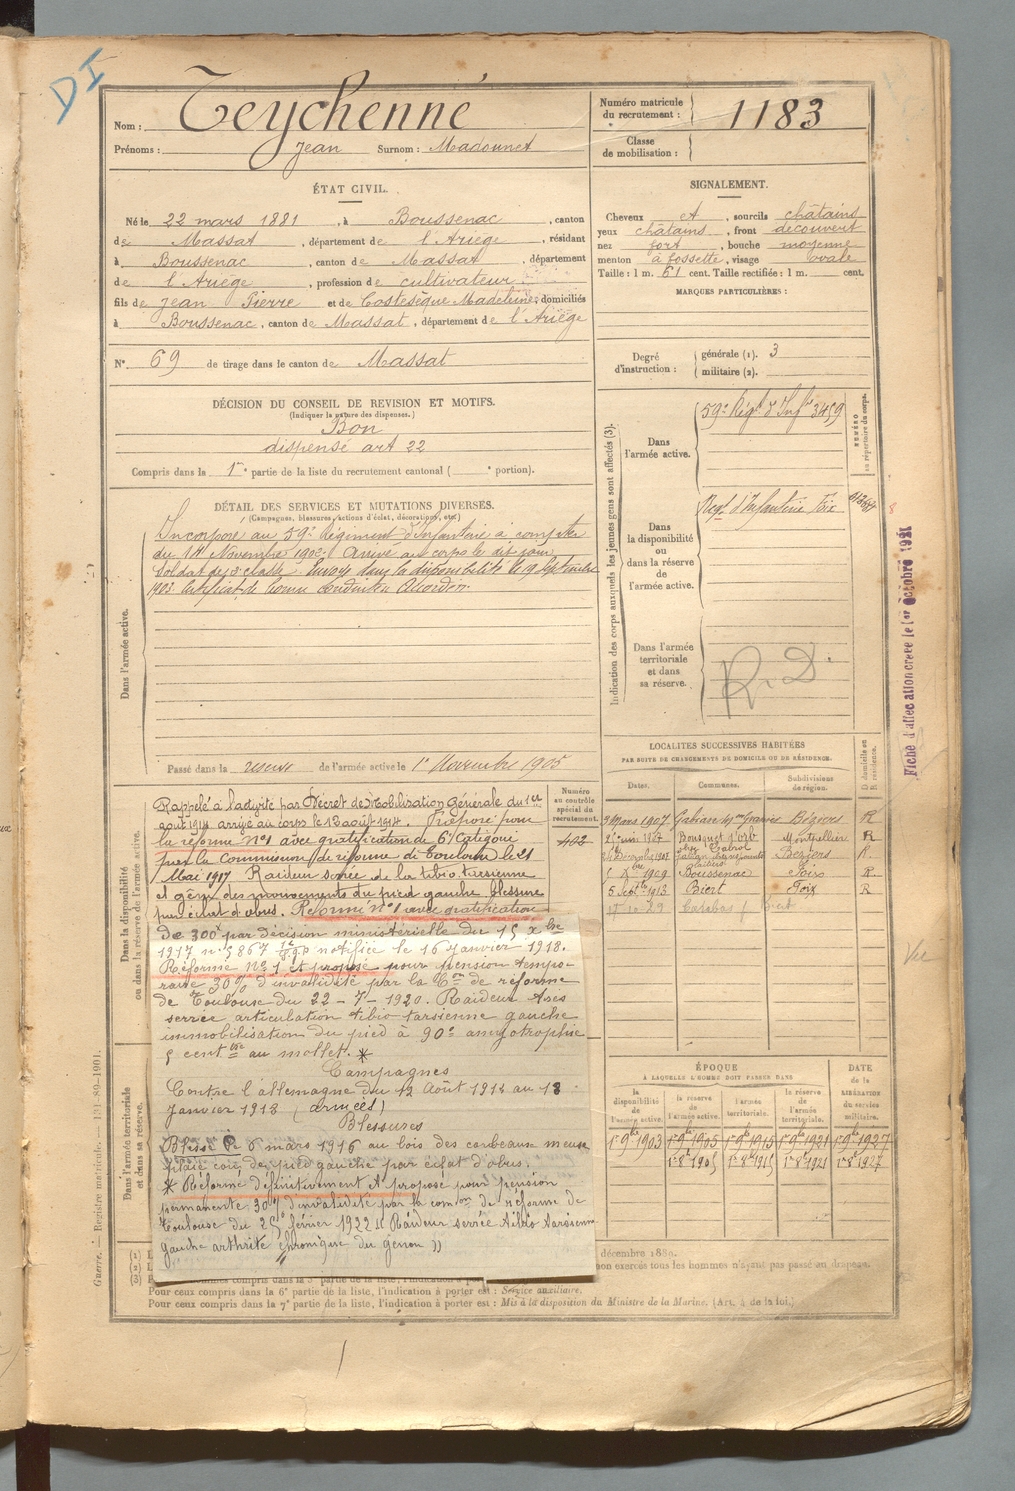 DI
Nom : Teychenné
Prénoms : Jean Surnom : Madounet
Numéro matricule du recrutement : 1183
Classe de mobilisation :
ÉTAT CIVIL.
Né le 22 mars 1881, à Boussenac, canton
de Massat, département de l'Ariège, résidant
à Boussenac, canton de Massat, département
de l'Ariège, profession de cultivateur
fils de Jean Pierre et de Costesèque Madeleine, domiciliés
à Boussenac, canton de Massat, département de l'Ariège
N° 69 de tirage dans le canton de Massat
SIGNALEMENT.
Cheveux et, sourcils châtains
yeux châtains, front découvert
nez fort, bouche moyenne
menton à fossette, visage ovale
Taille : 1 m. 61 cent. Taille rectifiée : 1 m. cent.
MARQUES PARTICULIÈRES :
Degré d'instruction : générale (1). 3
militaire (2).
DÉCISION DU CONSEIL DE REVISION ET MOTIFS.
(Indiquer la nature des dispenses.)
Bon
dispensé art 22
Compris dans la 1re partie de la liste du recrutement cantonal ( e portion).
DÉTAIL DES SERVICES ET MUTATIONS DIVERSES.
(Campagnes, blessures, actions d'éclat, décorations, etc.)
Dans l'armée active.
Incorporé au 59e Régiment d'Infanterie à compter
du Novembre Arrivé au corps le dit jour
Soldat de classe. Envoyé dans la disponibilité le 19 Septembre
1903. Certificat de bonne conduite Accordé.
Passé dans la réserve de l'armée active le 1er Novembre 1905
Indication des corps auxquels les jeunes gens sont affectés (3).
NUMÉRO au répertoire du corps.
Dans l'armée active.
59e Régt d'Infie 3459
Dans la disponibilité ou dans la réserve de l'armée active.
Régt d'Infanterie Foix
Dans l'armée territoriale et dans sa réserve.
R. D.
Fiche d'affectation créée le 1er Octobre 1921
LOCALITÉS SUCCESSIVES HABITÉES
PAR SUITE DE CHANGEMENTS DE DOMICILE OU DE RÉSIDENCE.
Dates. Communes. Subdivisions de région. D domicile ou R résidence.
3 Mars 1907 Gabian Béziers R
Bousquet d'orb Montpellier R
Béziers R.
1909 Boussenac Foix R
5 1913 Biert Foix R
17 10 29
Dans la disponibilité ou dans la réserve de l'armée active.
Numéro au contrôle spécial du recrutement.
402
Rappelé à l'activité par Décret de Mobilisation Générale du 1er
août 1914 arrivé au corps le 13 août 1914. Proposé pour
la réforme N°1 avec gratification de 6e Catégorie
par la Commission de réforme de Toulouse le 21
Mai 1917 Raideur serrée de la tibio tarsienne
et gêne des mouvements du pied gauche blessure
par éclat d'obus. Réformé N°1 avec gratification
de 300f par décision ministérielle du 15 xbre
1917 n° 5867 notifiée le 16 janvier 1918.
Réformé N° 1 et proposé pour pension tempo-
raire 30% d'invalidité par la Con de réforme
de Toulouse du 22 - 7 - 1920. Raideur très
serrée articulation tibio tarsienne gauche
immobilisation du pied à 90° amyotrophie
5 cent tre au mollet. *
Campagnes
Contre l'allemagne du 12 Août 1914 au 18
Janvier 1918 (armées)
Blessures
Blessé le 6 mars 1916 au bois des corbeaux meuse
plaie du pied gauche par éclat d'obus.
* Réformé définitivement et proposé pour pension
permanente 30% d'invalidité par la comon de réforme de
Toulouse du 25 février 1922 (( Raideur serrée tibio tarsienne
gauche arthrite chronique du genou ))
Dans l'armée territoriale et dans sa réserve.
ÉPOQUE
À LAQUELLE L'HOMME DOIT PASSER DANS
la disponibilité de l'armée active. la réserve de l'armée active. l'armée territoriale. la réserve de l'armée territoriale.
DATE de la LIBÉRATION du service militaire.
1er 9bre 1903 1er 9bre 1905 1er 9bre 1915 1er 9bre 1921 1er 9bre 1927
1er 8bre 1905 1er 8bre 1915 1er 8bre 1921 1er 8bre 1927
Vu
Guerre. — Registre matricule. — 131-89-1901.
(1) L décembre 1889.
(2) L non exercés tous les hommes n'ayant pas passé au drapeau.
(3) P
Pour ceux compris dans la 6e partie de la liste, l'indication à porter est : Service auxiliaire.
Pour ceux compris dans la 7e partie de la liste, l'indication à porter est : Mis à la disposition du Ministre de la Marine. (Art. 4 de la loi.)